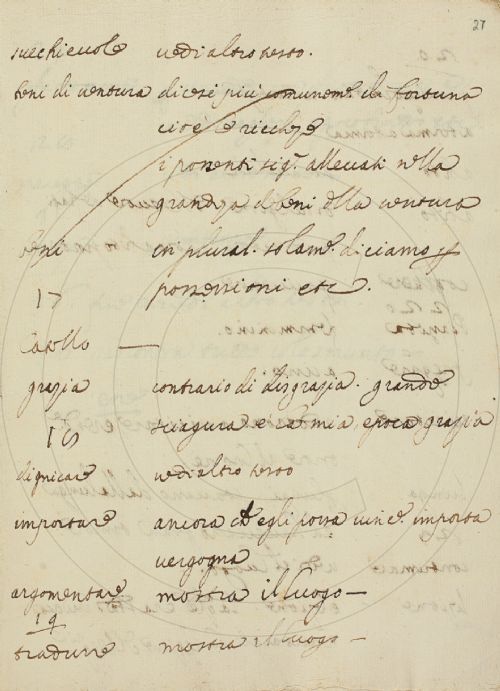 27
vedi altro verso.
beni di ventura dicesi più comunem.e da fortuna
cioè le ricchezze
i possenti sig.i allevati nella
grandezza e beni della ventura
beni in plural. solam.e diciamo
possessioni etc.
17
Capello —
grazia contrario di disgrazia. grande
sciagura e mia poca grazia
18
dignitare vedi altro verso
importare ancora ch'egli possa importa
vergogna
argomentare mostra il luogo —
19
tradurre mostra il luogo —